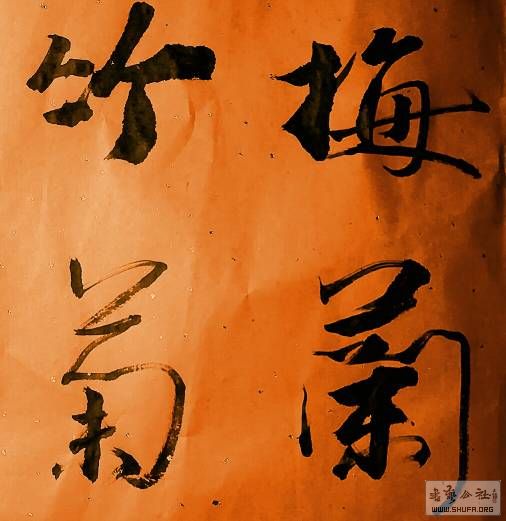 梅蘭
竹菊
书法公社
WWW.SHUFA.ORG